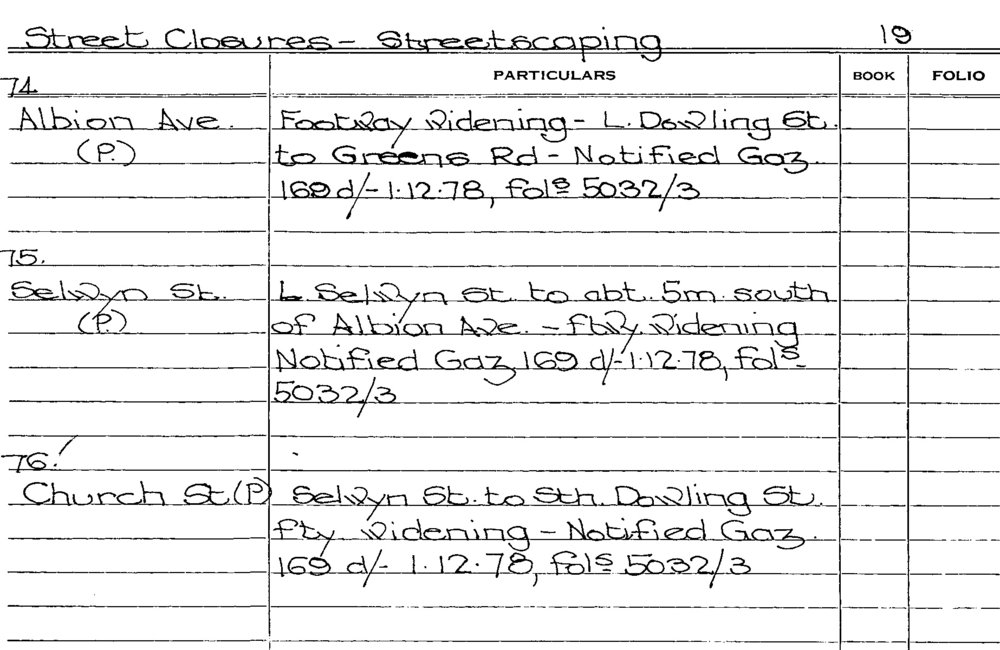 Street Closures - Streetscaping 19
PARTICULARS BOOK FOLIO
74.
Albion Ave. Footway Widening - L. Dowling St.
(P.) to Greens Rd - Notified Gaz
169 d/- 1.12.78, fols 5032/3
75.
Selwyn St. L. Selwyn St. to abt. 5m. south
(P.) of Albion Ave. - ftwy. Widening
Notified Gaz 169 d/- 1.12.78, fols
5032/3
76.
Church St (P) Selwyn St. to Sth. Dowling St.
fty Widening - Notified Gaz.
169 d/- 1.12.78, fols 5032/3